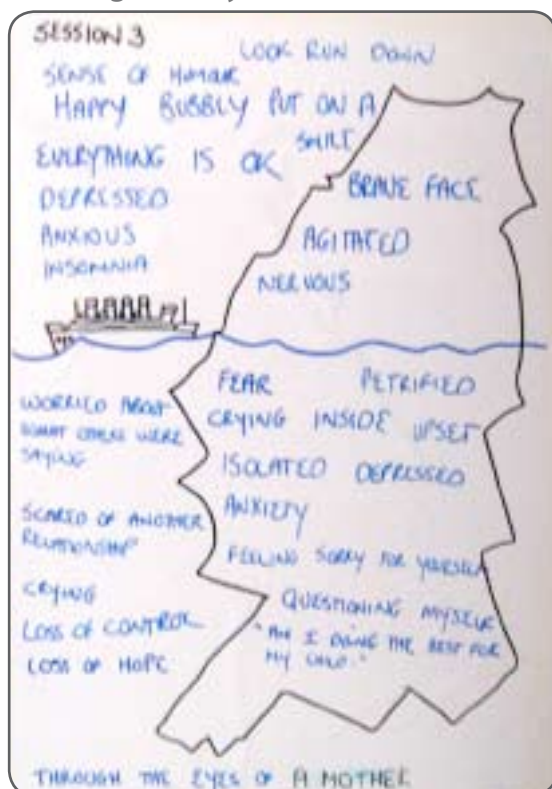 SESSION 3
LOOK RUN DOWN
SENSE OF HUMOUR
HAPPY BUBBLY PUT ON A
SMILE
EVERYTHING IS OK
BRAVE FACE
DEPRESSED
AGITATED
ANXIOUS
NERVOUS
INSOMNIA
FEAR PETRIFIED
CRYING INSIDE UPSET
ISOLATED DEPRESSED
ANXIETY
FEELING SORRY FOR YOURSELF
QUESTIONING MYSELF
"AM I DOING THE BEST FOR
MY CHILD."
WORRIED ABOUT
WHAT OTHERS WERE
SAYING
SCARED OF ANOTHER
RELATIONSHIP
CRYING
LOSS OF CONTROL
LOSS OF HOPE
THROUGH THE EYES OF A MOTHER